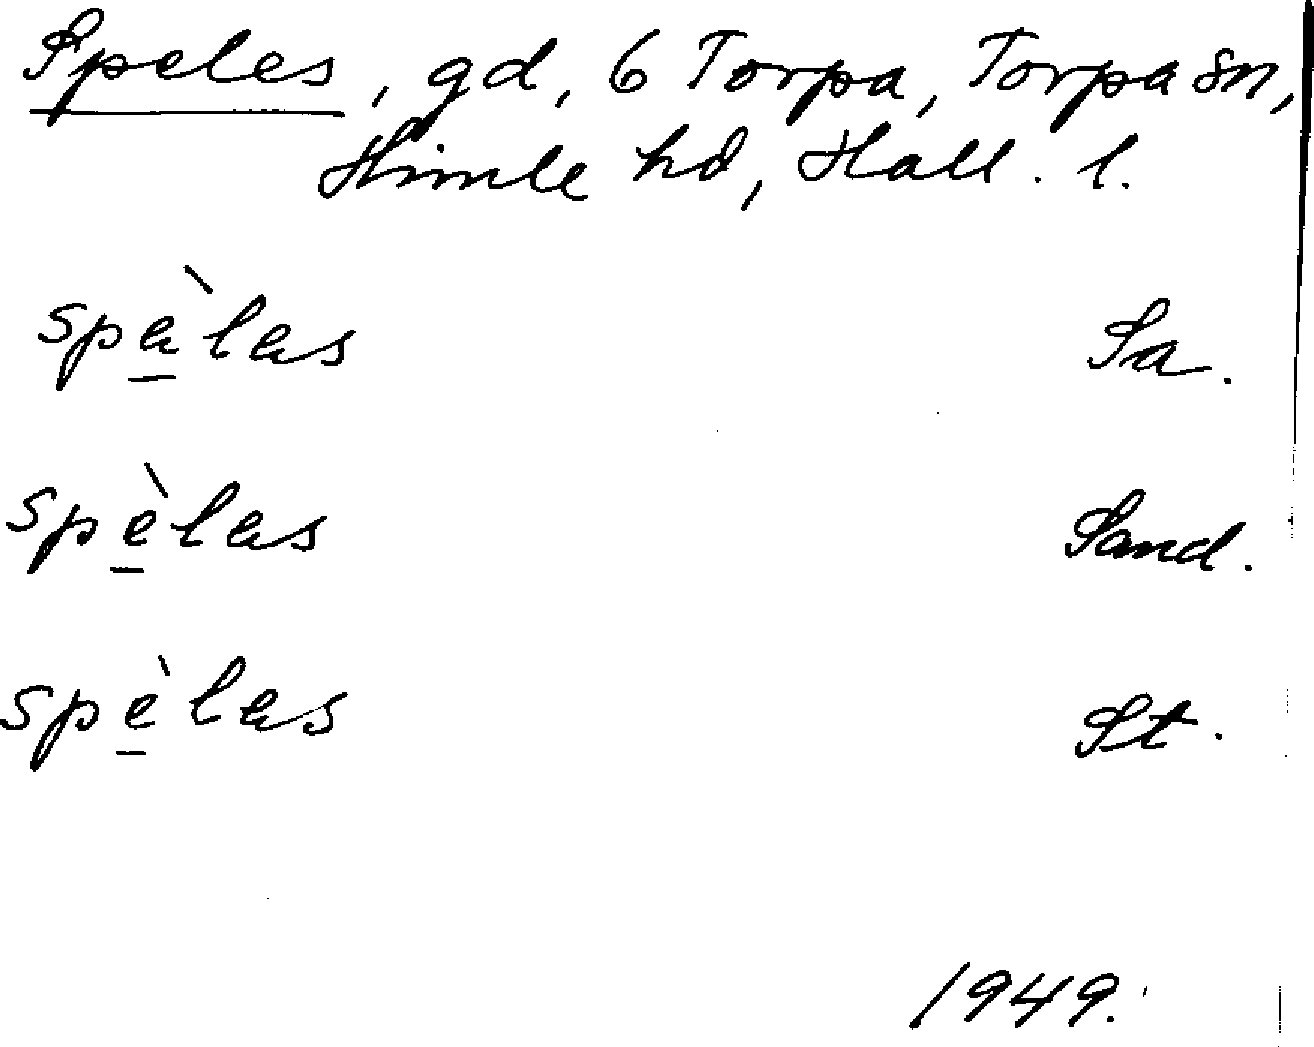 Speles, gd, 6 Torpa, Torpa sn,
Himle hd, Hall. l.
spà̱las Sa.
spè̱las Sand.
spè̱las St.
1949.